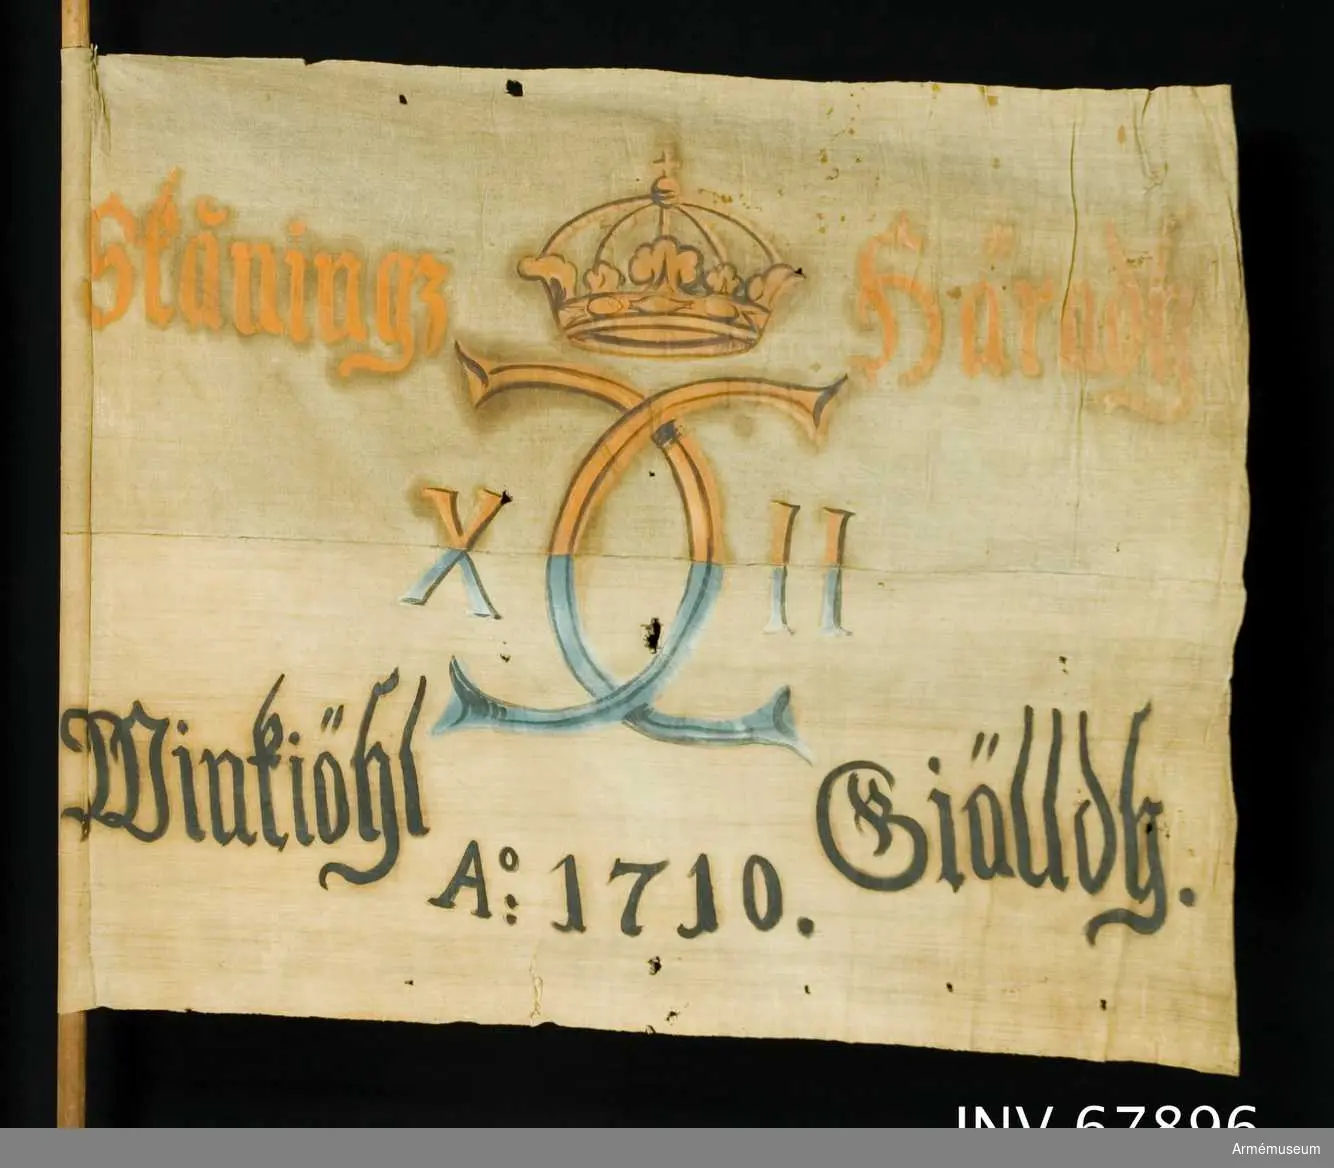 Skåningz Häradh
X CC II
Winkiöhl Giälldh.
Ao: 1710.
INV 67896
Armémuseum